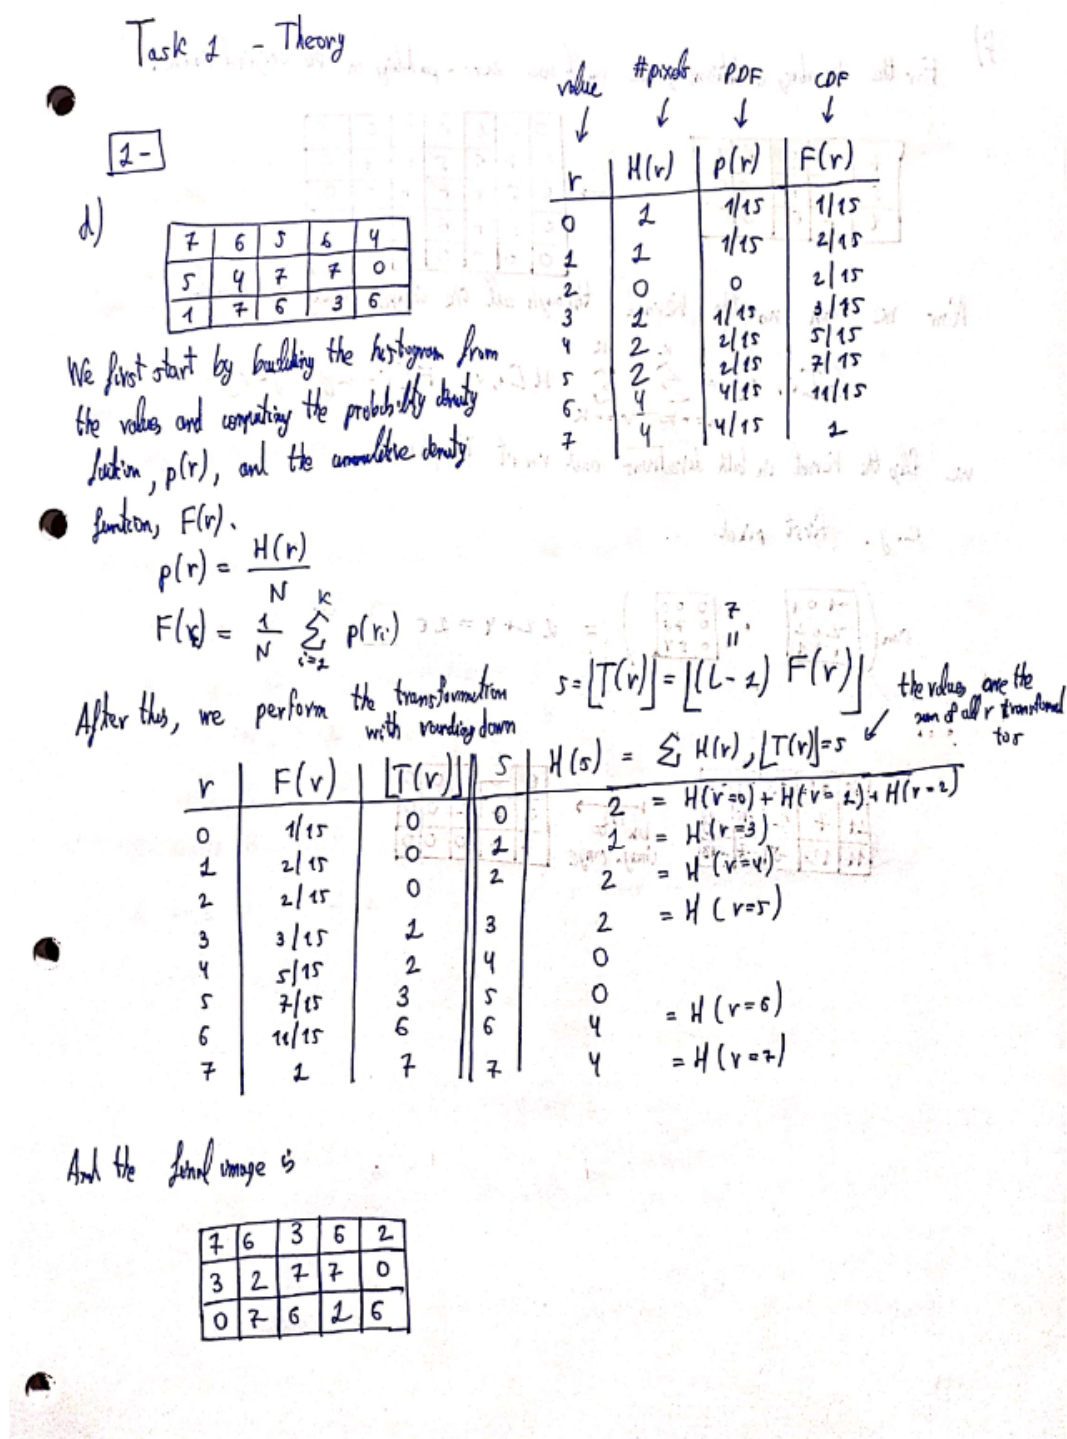 Task 1 - Theory
value #pixels PDF CDF
1-
r H(r) p(r) F(r)
0 1 1/15 1/15
1 1 1/15 2/15
2 0 0 2/15
3 1 1/15 3/15
4 2 2/15 5/15
5 2 2/15 7/15
6 4 4/15 11/15
7 4 4/15 1
d)
7 6 5 6 4
5 4 7 7 0
1 7 6 3 6
We first start by building the histogram from
the values and computing the probability density
fuction, p(r), and the cumulitive density
function, F(r).
p(r) = H(r) / N
F(rk) = 1/N Σ i=1 k p(ri)
After this, we perform the transformation
with rounding down
7
"
s = ⌊T(r)⌋ = ⌊(L-1) F(r)⌋
the values are the
sum of all r transformed
to s
r F(r) ⌊T(r)⌋ s H(s) = Σ H(r), ⌊T(r)⌋=s
0 1/15 0 0 2 = H(r=0) + H(r=1) + H(r=2)
1 2/15 0 1 1 = H(r=3)
2 2/15 0 2 2 = H(r=4)
3 3/15 1 3 2 = H(r=5)
4 5/15 2 4 0
5 7/15 3 5 0
6 11/15 6 6 4 = H(r=6)
7 1 7 7 4 = H(r=7)
And the final image is
7 6 3 6 2
3 2 7 7 0
0 7 6 1 6